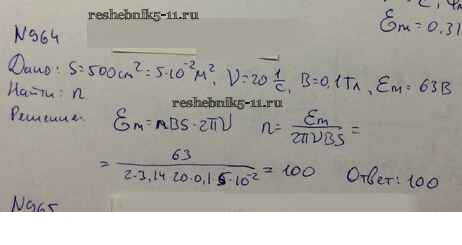 N964
reshebnik5-11.ru
ℰm=0.31
Дано: S=500см²=5·10⁻²м², ν=20 1/с, B=0,1Тл, ℰm=63В
Найти: n
reshebnik5-11.ru
Решение: ℰm=nBS·2πν n=ℰm/2πνBS=
=63/2·3,14·20·0,1·5·10⁻²=100 Ответ: 100
N965
reshebnik5-11.ru